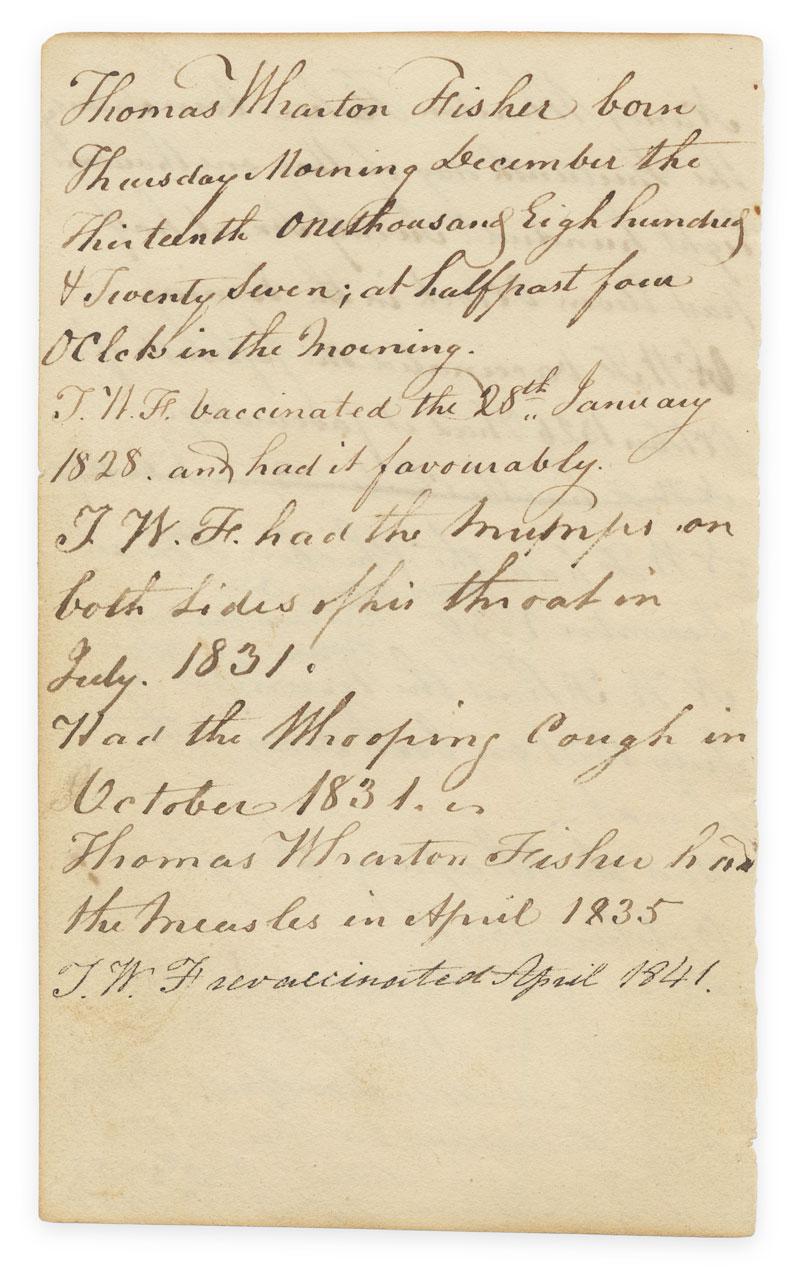 Thomas Wharton Fisher born
Thursday Morning December the
Thirteenth One thousand Eigh hundred
& Twenty Seven; at half past four
OClck in the Morning.
T. W. F. vaccinated the 28th January
1828. and had it favourably.
T. W. F. had the Mumps on
both Sides of his throat in
July. 1831.
Had the Whooping Cough in
October 1831.
Thomas Wharton Fisher had
the Measles in April 1835
T. W. F revaccinated April 1841.